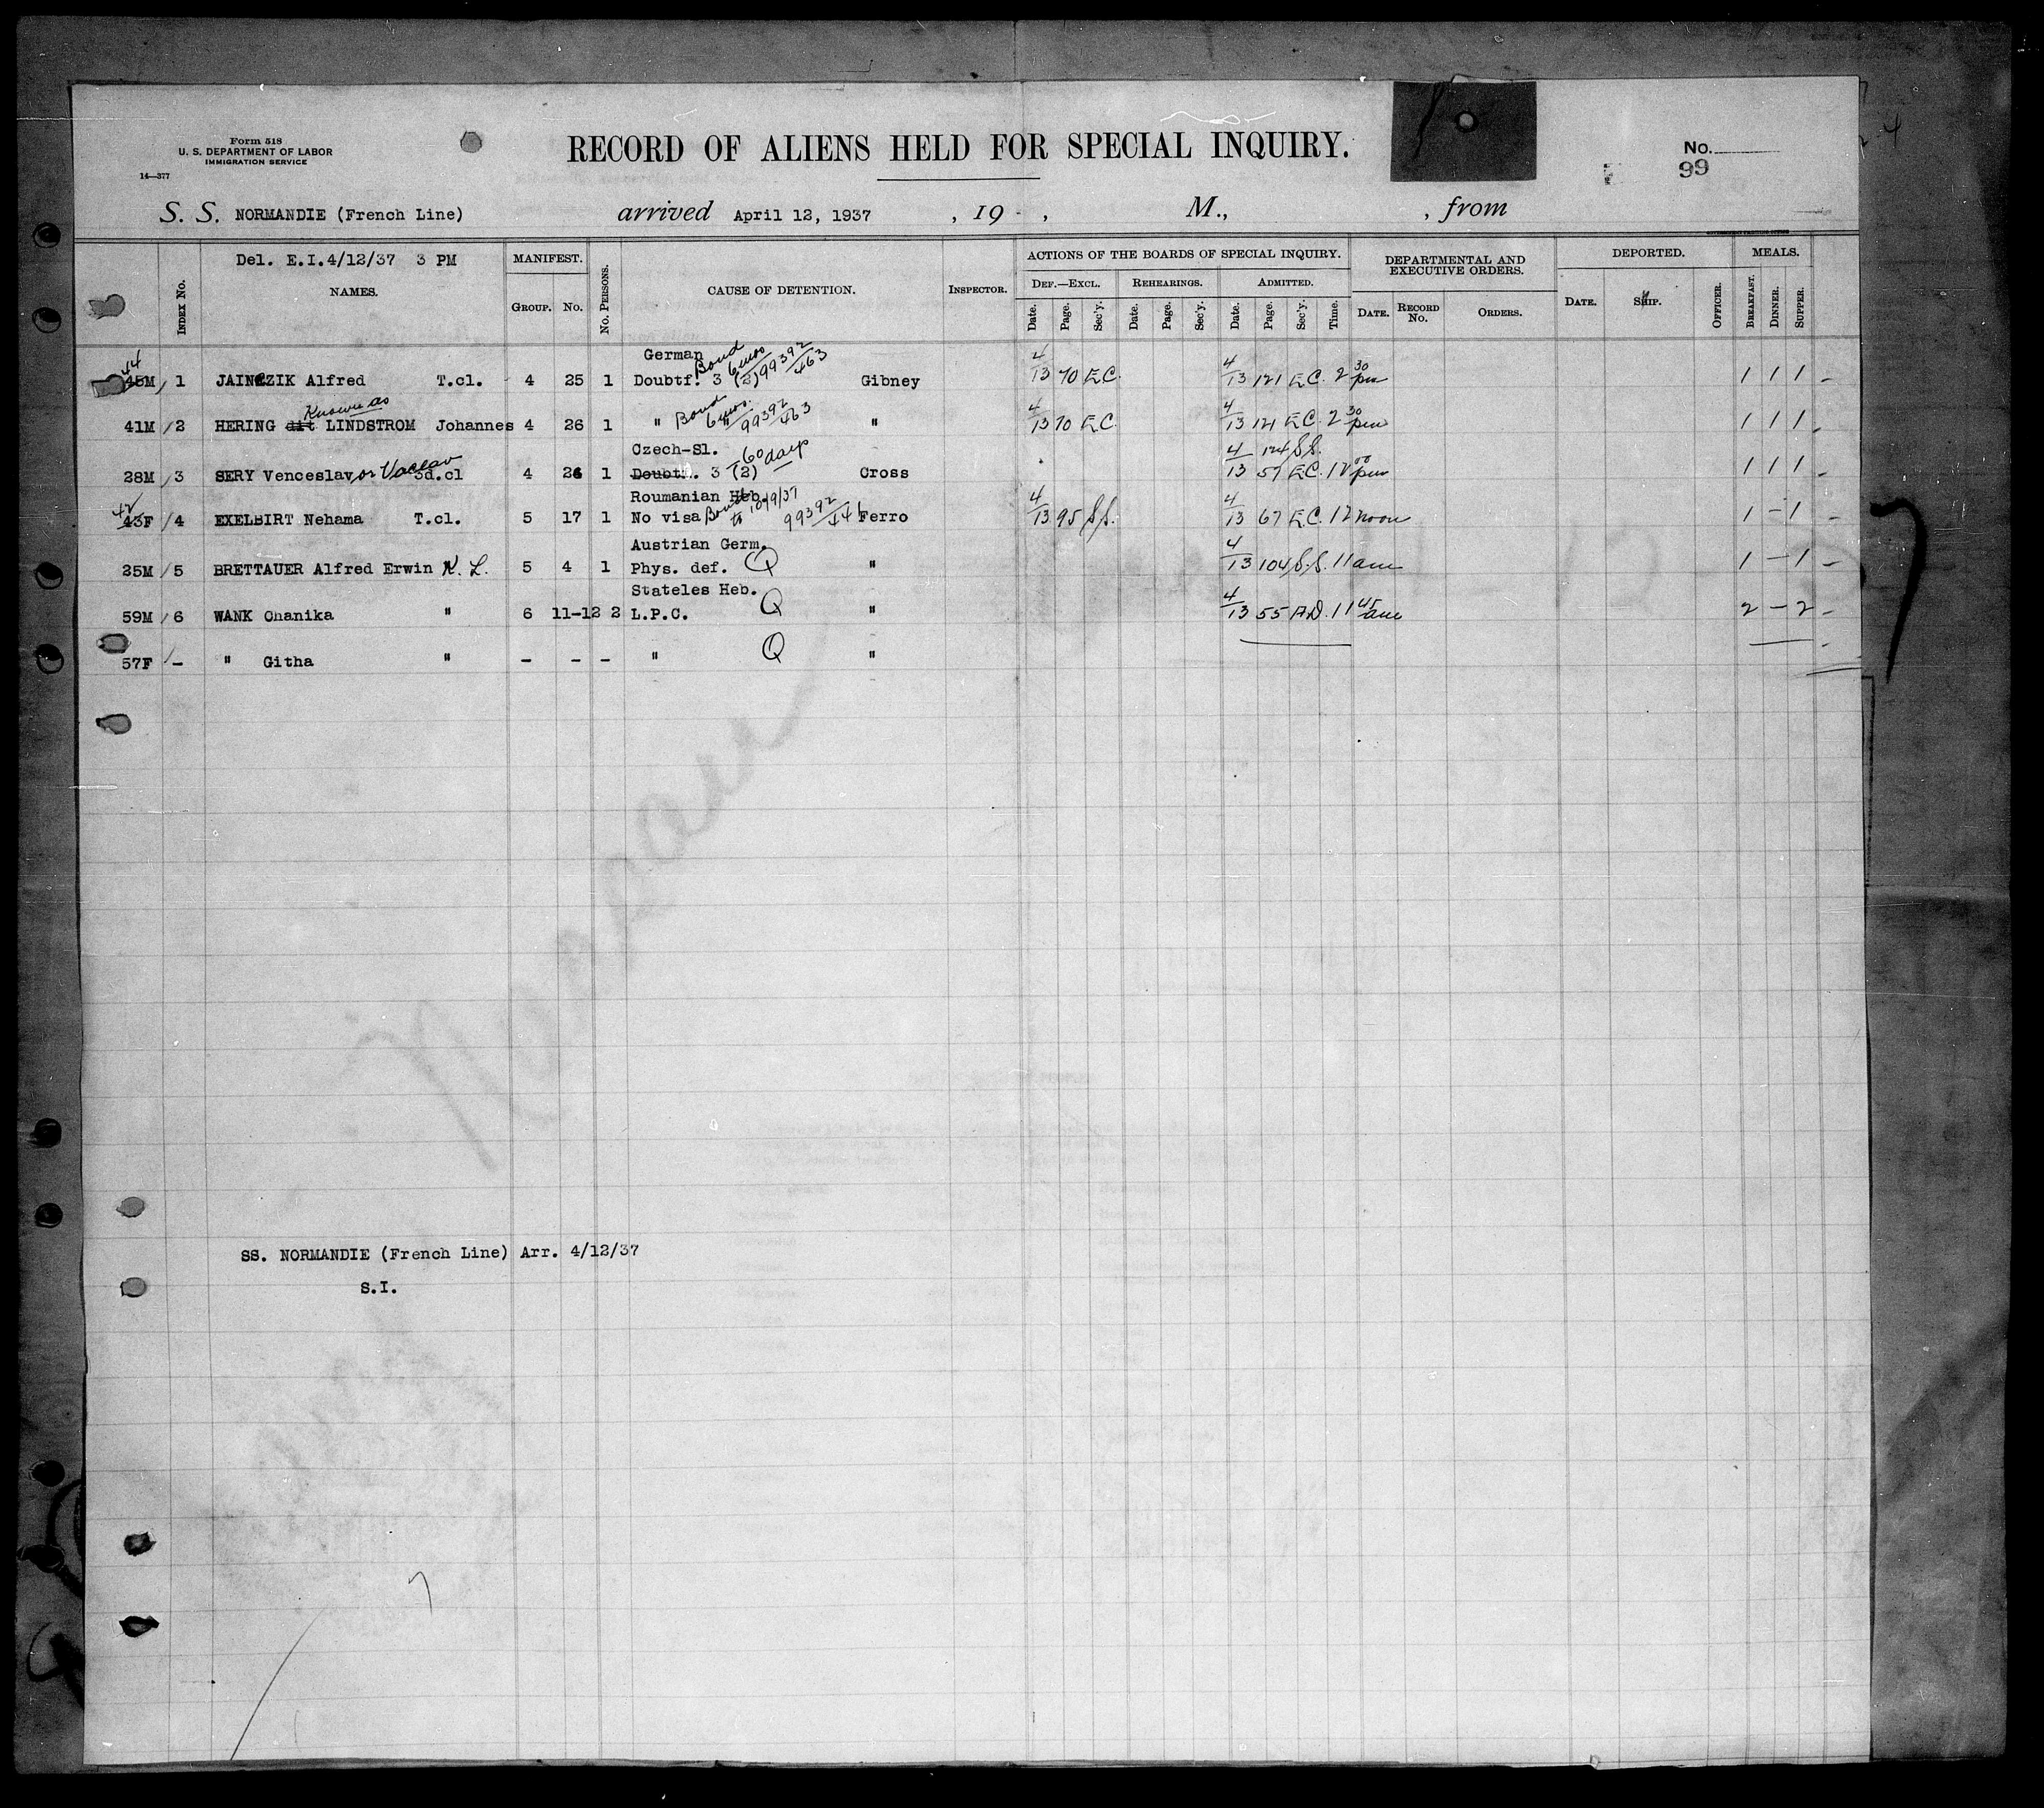 Form 518
U. S. DEPARTMENT OF LABOR
IMMIGRATION SERVICE
14—377
RECORD OF ALIENS HELD FOR SPECIAL INQUIRY.
No.
99
S. S. NORMANDIE (French Line) arrived April 12, 1937 , 19 , M., , from
Del. E.I.4/12/37 3 PM
NAMES.
INDEX No.
MANIFEST.
GROUP. No.
No. PERSONS.
CAUSE OF DETENTION.
INSPECTOR.
ACTIONS OF THE BOARDS OF SPECIAL INQUIRY.
DEF.—EXCL. REHEARINGS. ADMITTED.
Date. Page. Sec'y. Date. Page. Sec'y. Date. Page. Sec'y. Time.
DEPARTMENTAL AND EXECUTIVE ORDERS.
DATE. RECORD No. ORDERS.
DEPORTED.
DATE. SHIP. OFFICER.
MEALS.
BREAKFAST. DINNER. SUPPER.
44 German Bond 6 mos 99392/463
45M 1 JAINCZIK Alfred T.cl. 4 25 1 Doubtf. 3 (2) Gibney 4/13 70 E.C. 4/13 121 E.C. 2 30 pm 1 1 1 -
Known as Bond 6 mos. 99392/463
41M 2 HERING dit LINDSTROM Johannes 4 26 1 " " 4/13 70 E.C. 4/13 121 E.C. 2 30 pm 1 1 1 -
Czech-Sl. 60 days 124 S.S.
28M 3 SERY Venceslav, or Vaclav 3d.cl 4 26 1 Doubtf. 3 (2) Cross 4/13 57 E.C. 12 00 pm 1 1 1 -
42 Roumanian Heb. Bond to 10/9/37 99392/441
43F 4 EXELBIRT Nehama T.cl. 5 17 1 No visa Ferro 4/13 95 S.S. 4/13 67 E.C. 12 noon 1 - 1 -
Austrian Germ.
25M 5 BRETTAUER Alfred Erwin 5 4 1 Phys. def. Q " 4/13 104 S.S. 11 am 1 - 1 -
Stateles Heb.
59M 6 WANK Chanika " 6 11-12 2 L.P.C. Q " 4/13 55 A.D. 11 45 am 2 - 2 -
57F - " Githa " - - - " Q "
SS. NORMANDIE (French Line) Arr. 4/12/37
S.I.